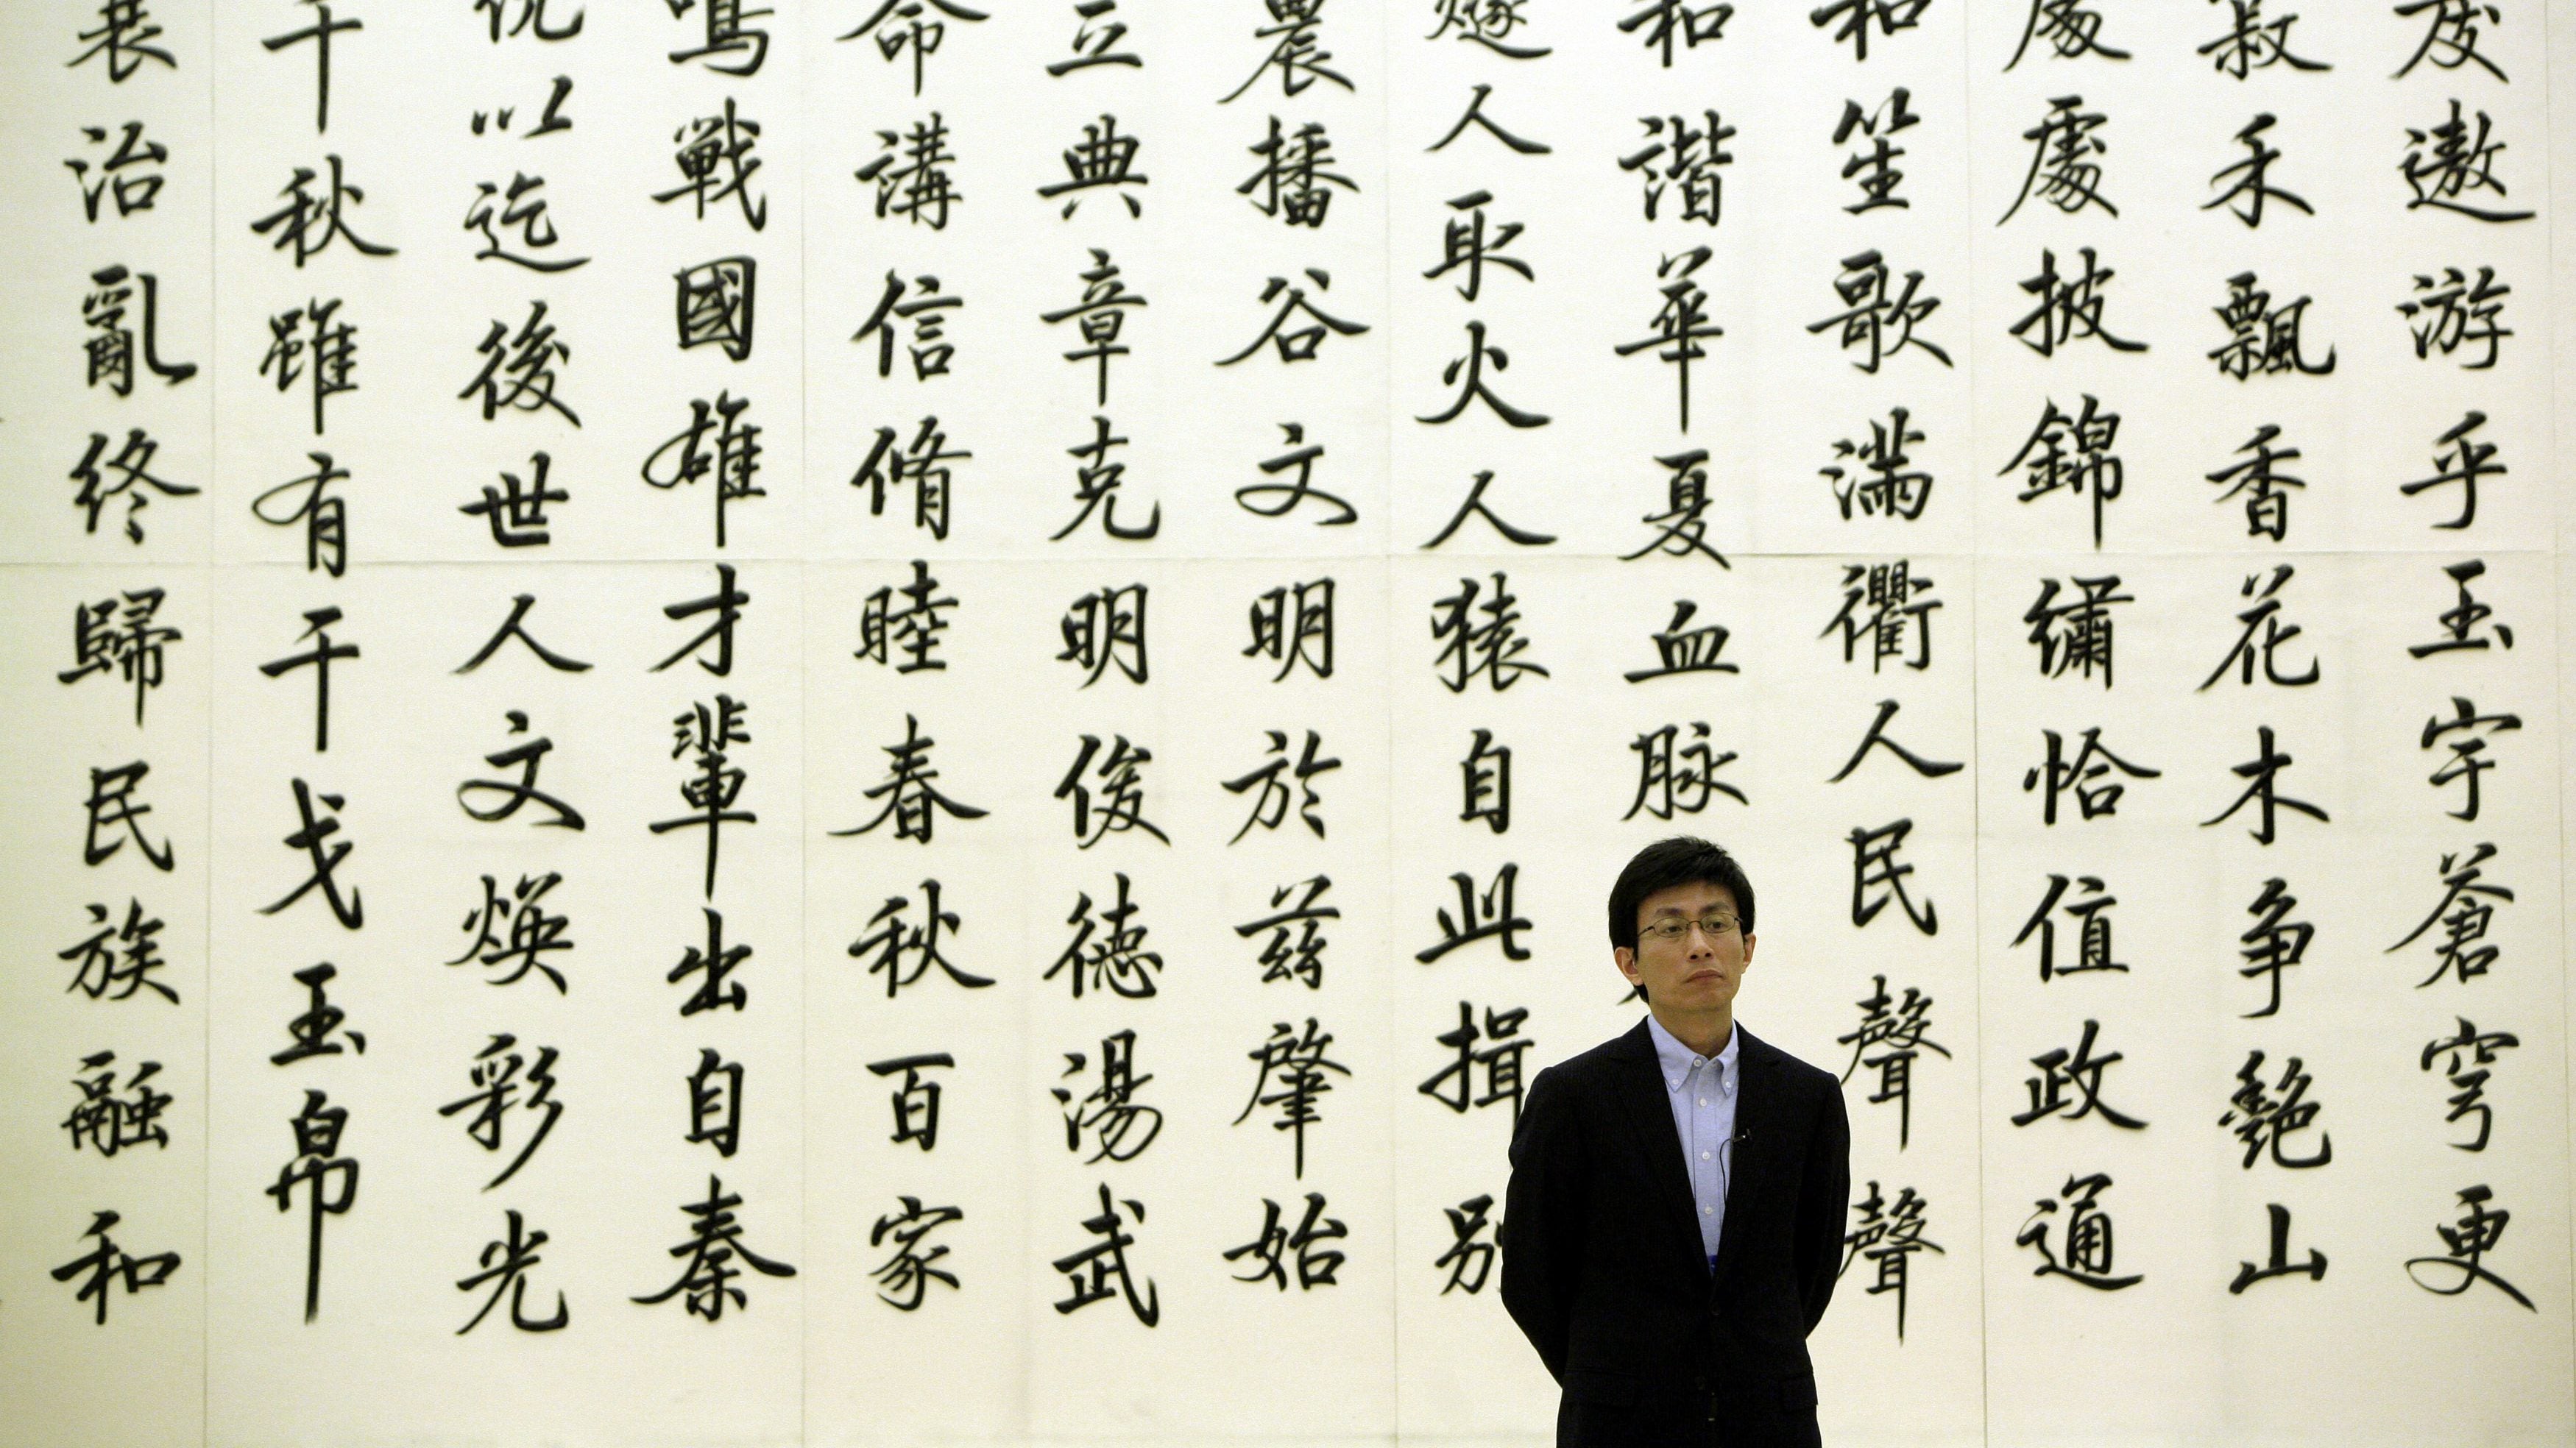 遨游乎玉宇蒼穹更
菽禾飄香花木争艷山
處處披錦繡恰值政通
和笙歌滿衢人民聲聲
和諧華夏血脉
燧人取火人猿自此揖别
農播谷文明於兹肇始
立典章克明俊德湯武
命講信脩睦春秋百家
鳴戰國雄才輩出自秦
統以迄後世人文焕彩光
千秋雖有干戈玉帛
衰治亂終歸民族融和